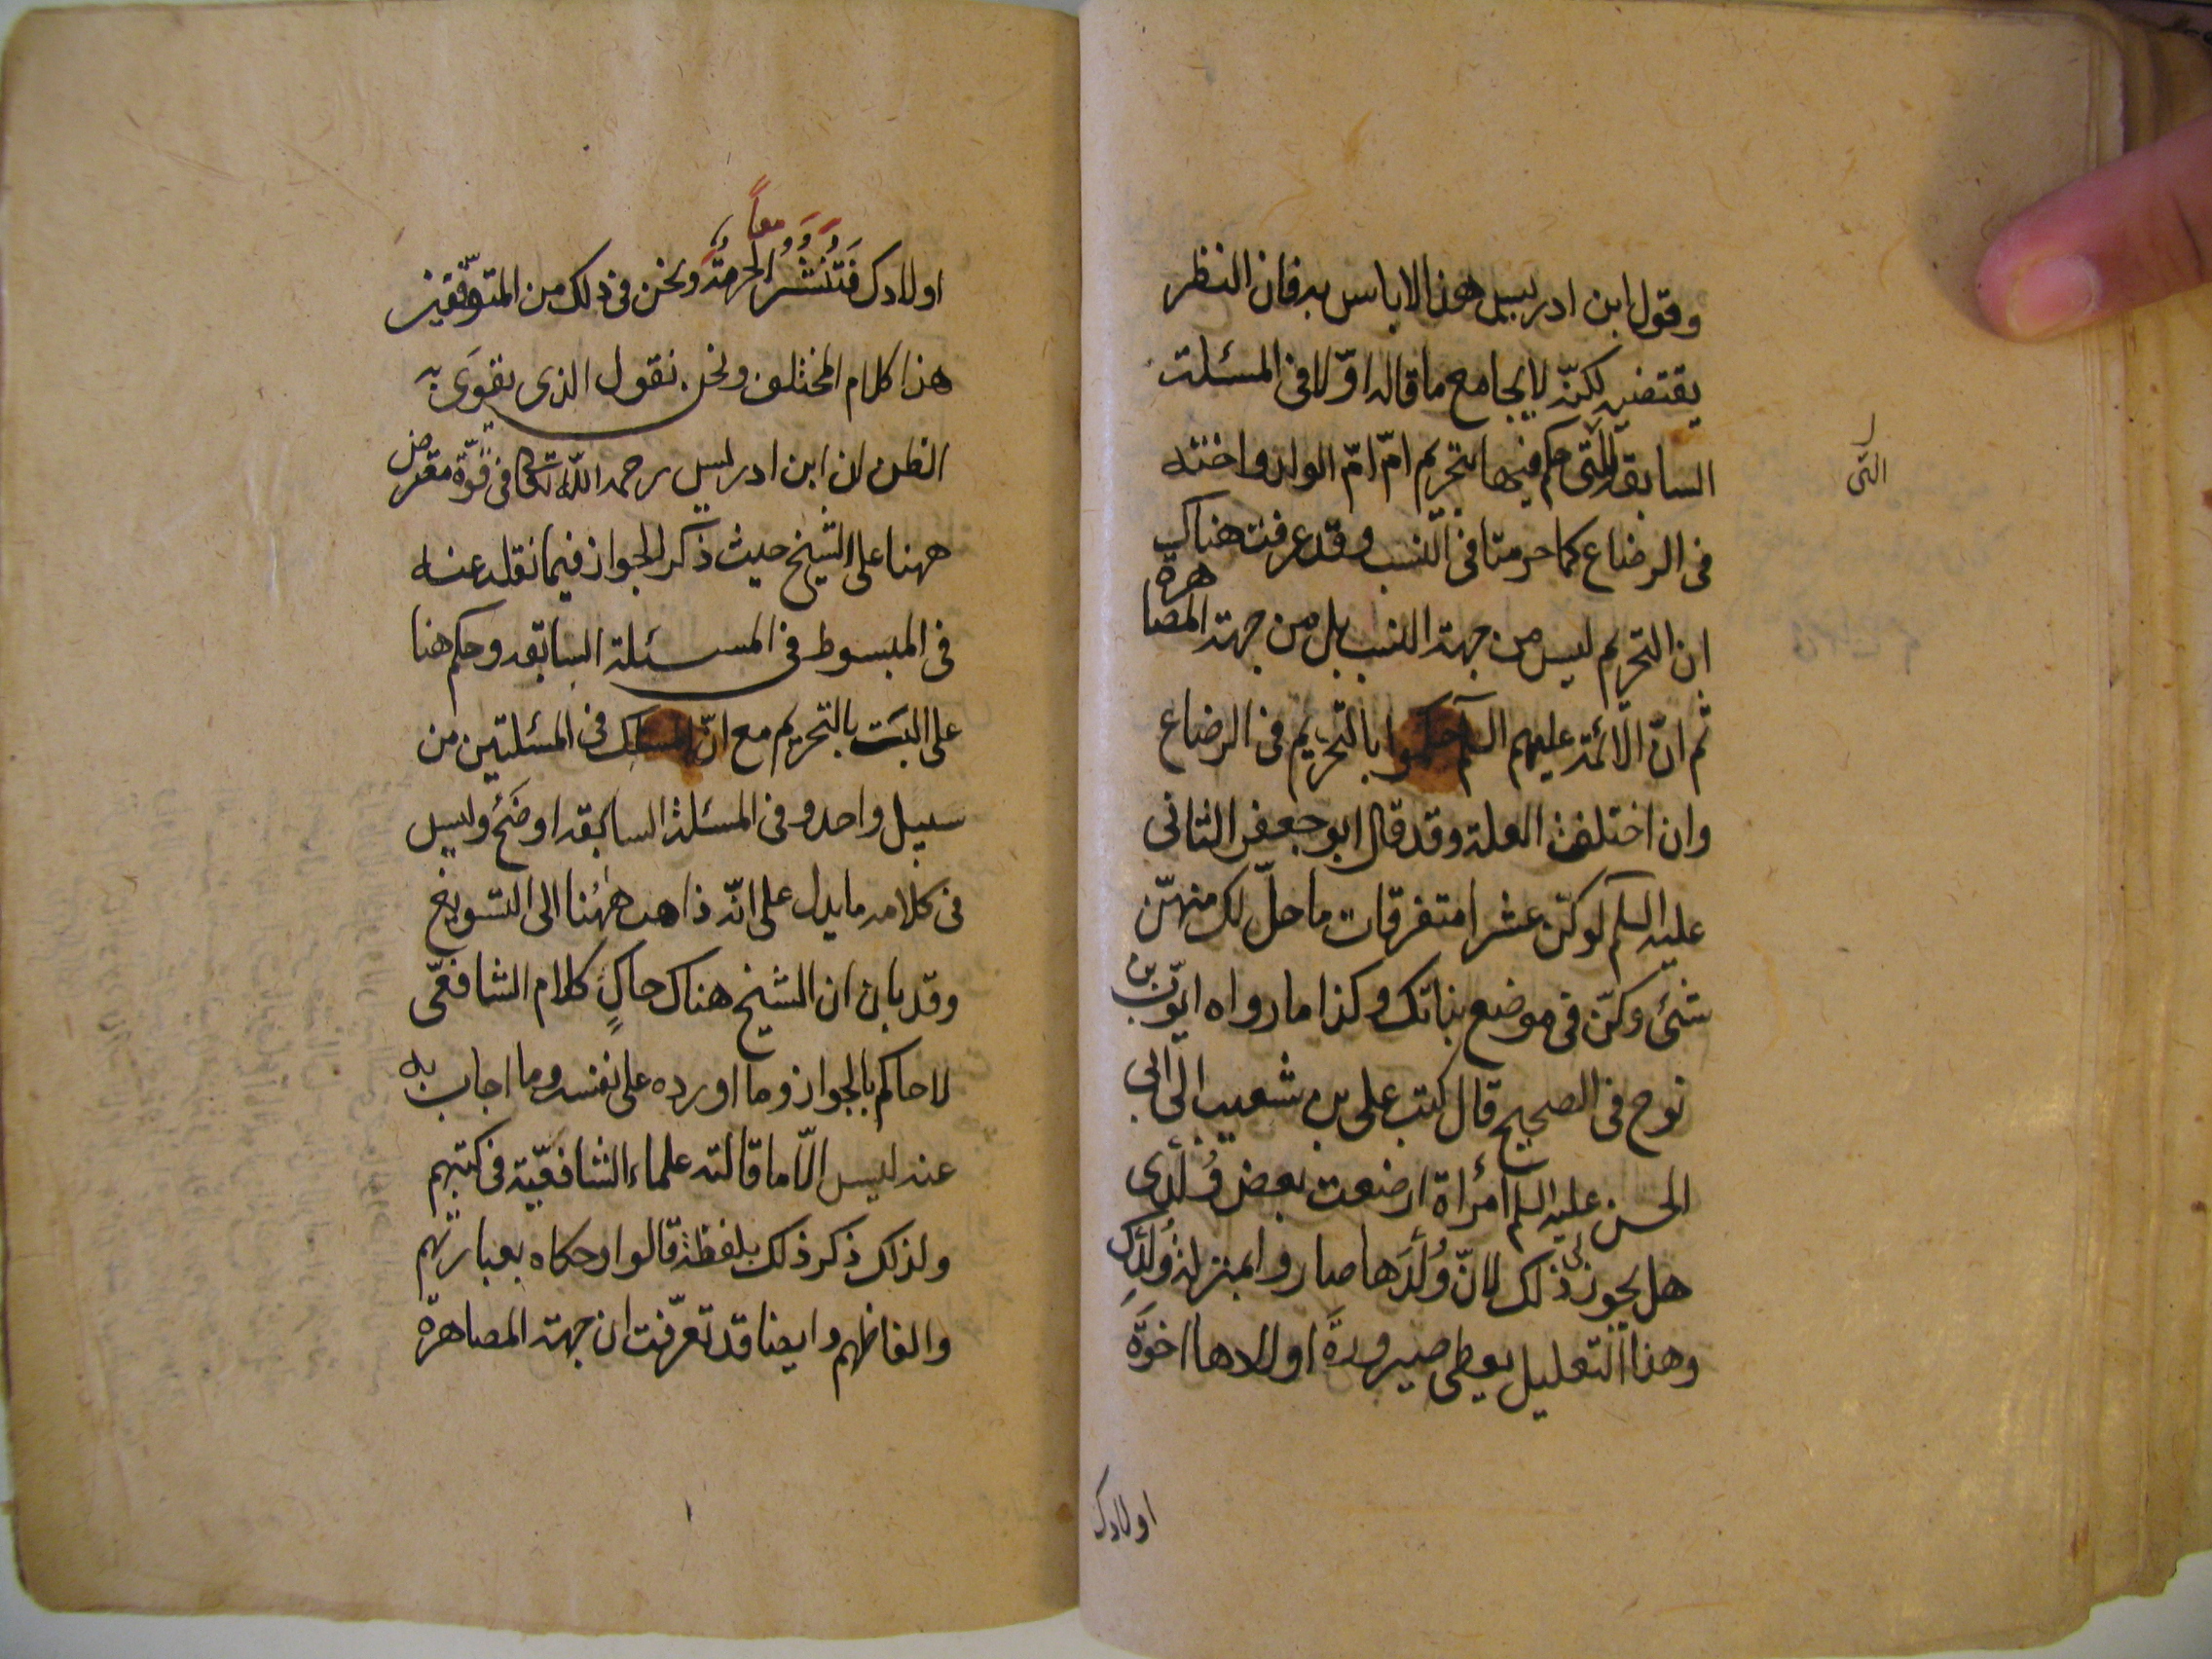 وقول ابن ادريس هذا لا باس به فان النظر
يقتضيه لكنّه لا يجامع ما قاله اوّلا فى المسئلة
السابقة الّتى حكم فيها بتحريم امّ امّ الولد واخته
فى الرضاع كما حرمتا فى النّسب وقد عرفت هناك
ان التحريم ليس من جهة النسب بل من جهة المصاهرة
ثم انّ الائمة عليهم السلم حكموا بالتحريم فى الرضاع
وان اختلفت العلة وقد قال ابو جعفر الثانى
عليه السلم لو كنّ عشرا متفرقات ما حلّ لك منهنّ
شئ وكنّ فى موضع بناتك وكذا ما رواه ايّوب بن
نوح فى الصحيح قال كتب على بن شعيب الى ابى
الحسن عليه السلم امرأة ارضعت بعض وُلْدى
هل يجوز لى ذلك لانّ وُلْدَها صاروا بمنزلة وُلْدِك
وهذا التعليل يعطى صيرورة اولادها اخوة
التى
اولادك
اولادك فَتُنْشُرُ الحرمةُ ونحن فى ذلك من المتوقّفين
معاً
هذا كلام المختلف ونحن نقول الذى يقوى به
الظن ان ابن ادريس رحمه الله تعالى فى قوّة معترض
ههنا على الشيخ حيث ذكر الجواز فيما نقله عنه
فى المبسوط فى المسئلة السابقه وحكم هنا
على البَت بالتحريم مع انّ المسلك فى المسئلتين من
سبيل واحد وفى المسئلة السابقه اوضح وليس
فى كلامه ما يدل على انّه ذاهب ههُنا الى التسويغ
وقد بان ان الشيخ هناك حاكٍ كلام الشافعّى
لا حاكم بالجواز وما اورده على نفسه وما اجاب به
عنه ليس الّا ما قالته علماء الشافعيّة فى كتبهم
ولذلك ذكر ذلك بلفظة قالوا وحكاه بعبارتهم
والفاظهم وايضا قد تعرّفت ان جهة المصاهرة